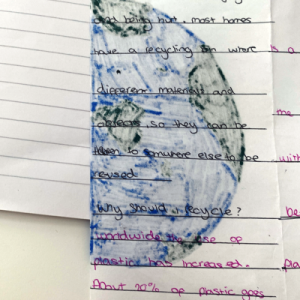 and being hurt. most homes
have a recycling bin where is a
different materials and
so they can be me
taken to somwhere else to be with
reused
Why should I recycle? be
worldwide the use of
plastic has increased. Pla
About 70% of plastic goes